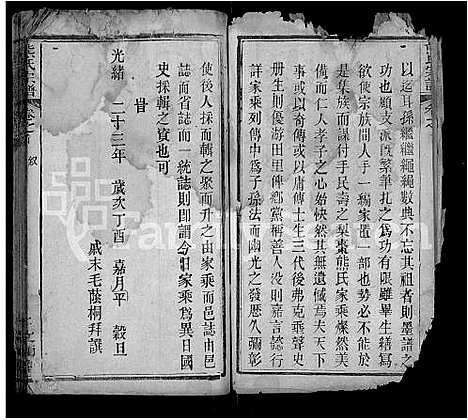 以迄耳孫繼繼繩繩數典不忘其祖者則墨譜之
功也惟支派既繁筆札之爲功有限於是生者籍爲
欲使宗族間人手一編家置一部也勢必不能於
是集族而謀付手民壽之梨棗熊氏家乘燦然美
備而仁人孝子之心始怏然其無遺憾焉夫天下
事或以奇傳或以庸傳士生三代後弗克乘聲史
册生則優游田里俾鄉黨稱善人没則嘉言懿行
詳家乘列傳中爲子孫法而幽光之發歷久彌彰
使後人採而輯之彙而升之由家乘而邑誌由邑
誌而省誌而一統誌則卽謂今日家乘爲異日國
史採輯之資也可
昔
光緒 二十三年 歲次丁酉 嘉月平 穀旦
戚末毛蔭桐拜譔
熊氏宗譜
卷之首
叙